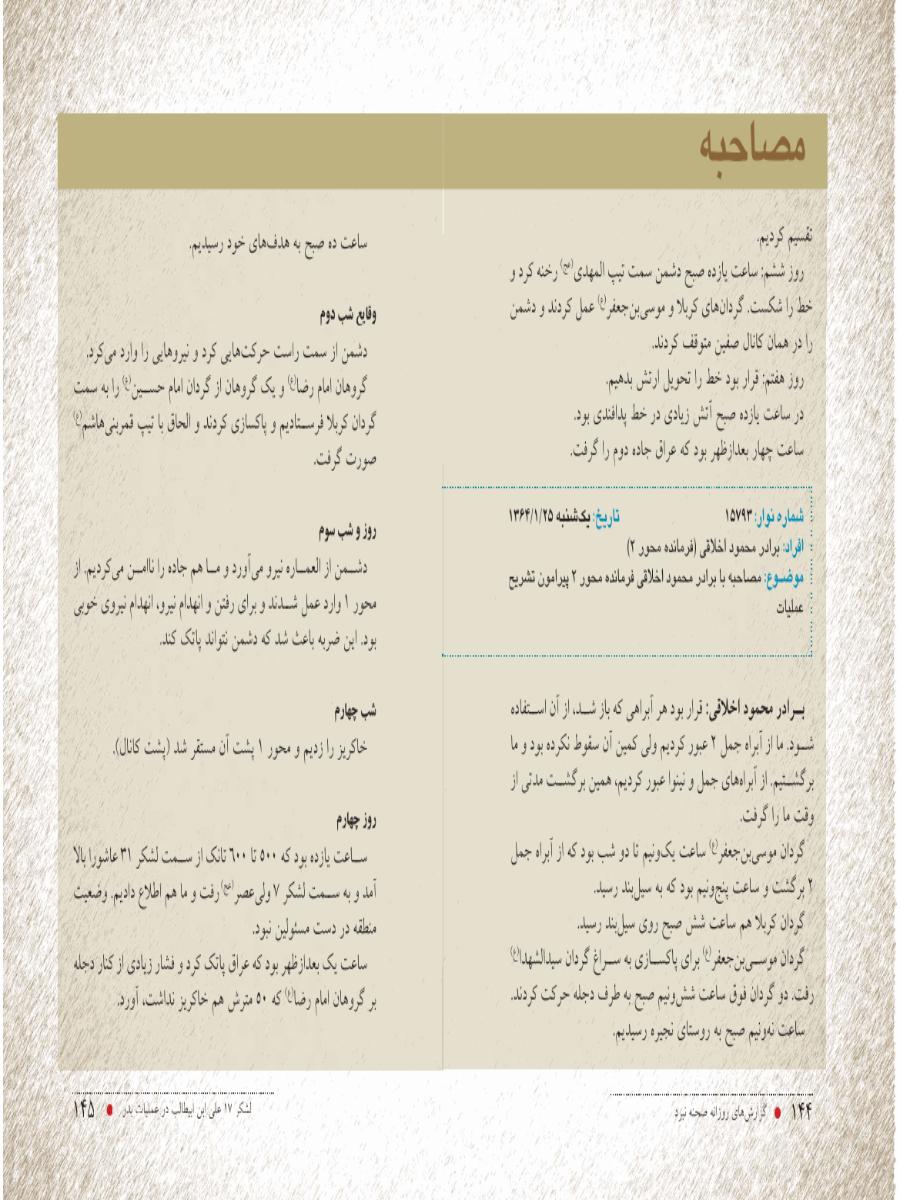 مصاحبه
تقسیم کردیم.
روز ششم: ساعت یازده صبح دشمن سمت تیپ المهدی(عج) رخنه کرد و
خط را شکست. گردان‌های کربلا و موسی‌بن‌جعفر(ع) عمل کردند و دشمن
را در همان کانال صفین متوقف کردند.
روز هفتم: قرار بود خط را تحویل ارتش بدهیم.
در ساعت یازده صبح آتش زیادی در خط پدافندی بود.
ساعت چهار بعدازظهر بود که عراق جاده دوم را گرفت.
شماره نوار: ۱۵۷۹۳ تاریخ: یک‌شنبه ۱۳۶۴/۱/۲۵
افراد: برادر محمود اخلاقی (فرمانده محور ۲)
موضوع: مصاحبه با برادر محمود اخلاقی فرمانده محور ۲ پیرامون تشریح
عملیات
برادر محمود اخلاقی: قرار بود هر آبراهی که باز شد، از آن استفاده
شود. ما از آبراه جمل ۲ عبور کردیم ولی کمین آن سقوط نکرده بود و ما
برگشتیم. از آبراه‌های جمل و نینوا عبور کردیم، همین برگشت مدتی از
وقت ما را گرفت.
گردان موسی‌بن‌جعفر(ع) ساعت یک‌ونیم تا دو شب بود که از آبراه جمل
۲ برگشت و ساعت پنج‌ونیم بود که به سیل‌بند رسید.
گردان کربلا هم ساعت شش صبح روی سیل‌بند رسید.
گردان موسی‌بن‌جعفر(ع) برای پاکسازی به سراغ گردان سیدالشهدا(ع)
رفت. دو گردان فوق ساعت شش‌ونیم صبح به طرف دجله حرکت کردند.
ساعت نه‌ونیم صبح به روستای نجیره رسیدیم.
۱۴۴ ● گزارش‌های روزانه صحنه نبرد
ساعت ده صبح به هدف‌های خود رسیدیم.
وقایع شب دوم
دشمن از سمت راست حرکت‌هایی کرد و نیروهایی را وارد می‌کرد.
گروهان امام رضا(ع) و یک گروهان از گردان امام حسین(ع) را به سمت
گردان کربلا فرستادیم و پاکسازی کردند و الحاق با تیپ قمربنی‌هاشم(ع)
صورت گرفت.
روز و شب سوم
دشمن از العماره نیرو می‌آورد و ما هم جاده را ناامن می‌کردیم. از
محور ۱ وارد عمل شدند و برای رفتن و انهدام نیرو، انهدام نیروی خوبی
بود. این ضربه باعث شد که دشمن نتواند پاتک کند.
شب چهارم
خاکریز را زدیم و محور ۱ پشت آن مستقر شد (پشت کانال).
روز چهارم
ساعت یازده بود که ۵۰۰ تا ۶۰۰ تانک از سمت لشکر ۳۱ عاشورا بالا
آمد و به سمت لشکر ۷ ولی‌عصر(عج) رفت و ما هم اطلاع دادیم. وضعیت
منطقه در دست مسئولین نبود.
ساعت یک بعدازظهر بود که عراق پاتک کرد و فشار زیادی از کنار دجله
بر گروهان امام رضا(ع) که ۵۰ مترش هم خاکریز نداشت، آورد.
لشکر ۱۷ علی ابن ابیطالب در عملیات بدر ● ۱۴۵